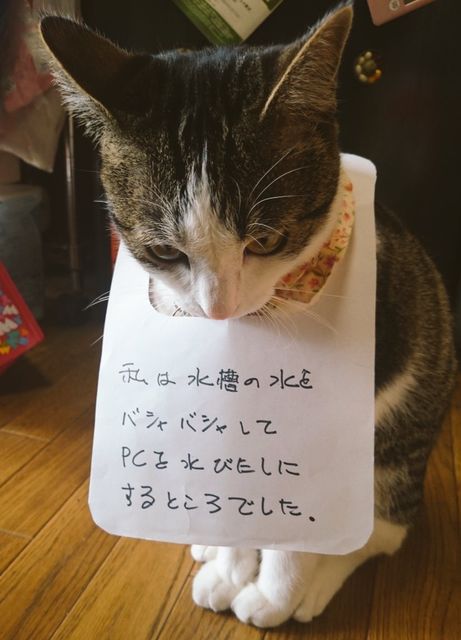 私は水槽の水を
バシャバシャして
PCを水びたしに
するところでした。